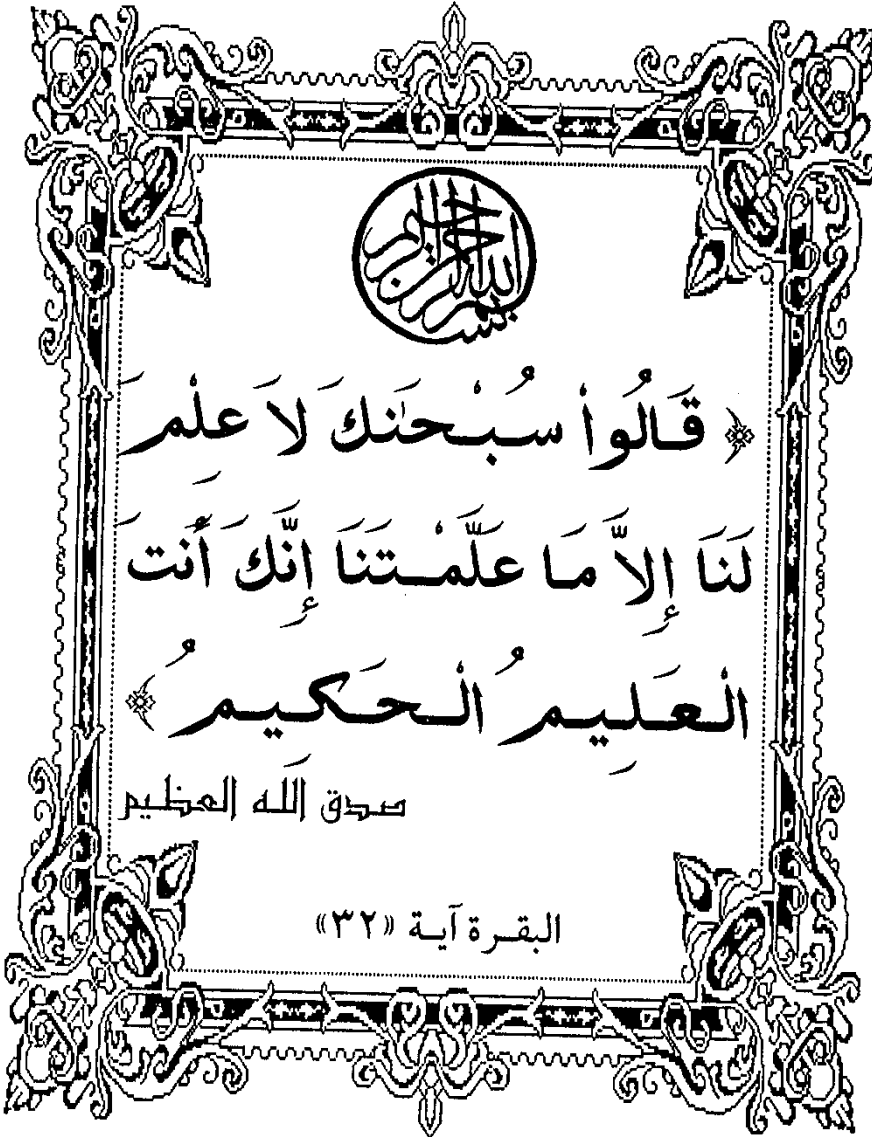 بسم الله الرحمن الرحيم
﴿ قَالُواْ سُبْحَٰنَكَ لاَ عِلْمَ
لَنَا إِلاَّ مَا عَلَّمْتَنَا إِنَّكَ أَنتَ
الْعَلِيمُ الْحَكِيمُ ﴾
صدق الله العظيم
البقرة آية «٣٢»